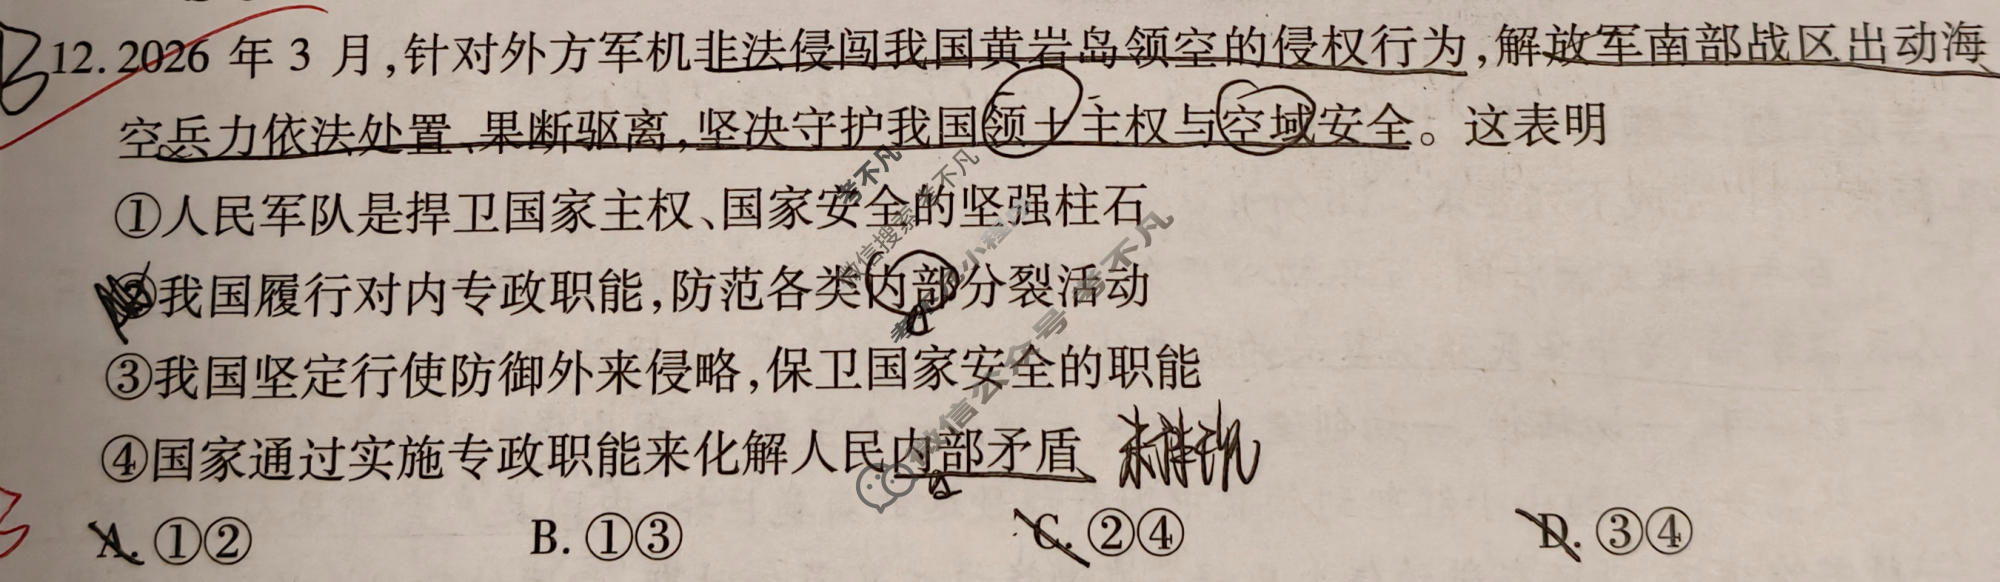 B
12.2026 年 3 月,针对外方军机非法侵闯我国黄岩岛领空的侵权行为,解放军南部战区出动海
空兵力依法处置、果断驱离,坚决守护我国领土主权与空域安全。这表明
①人民军队是捍卫国家主权、国家安全的坚强柱石
②我国履行对内专政职能,防范各类内部分裂活动
③我国坚定行使防御外来侵略,保卫国家安全的职能
④国家通过实施专政职能来化解人民内部矛盾 未体现
A. ①② B. ①③ C. ②④ D. ③④
考不凡
微信搜索 考不凡
考不凡小程序
微信公众号 考不凡